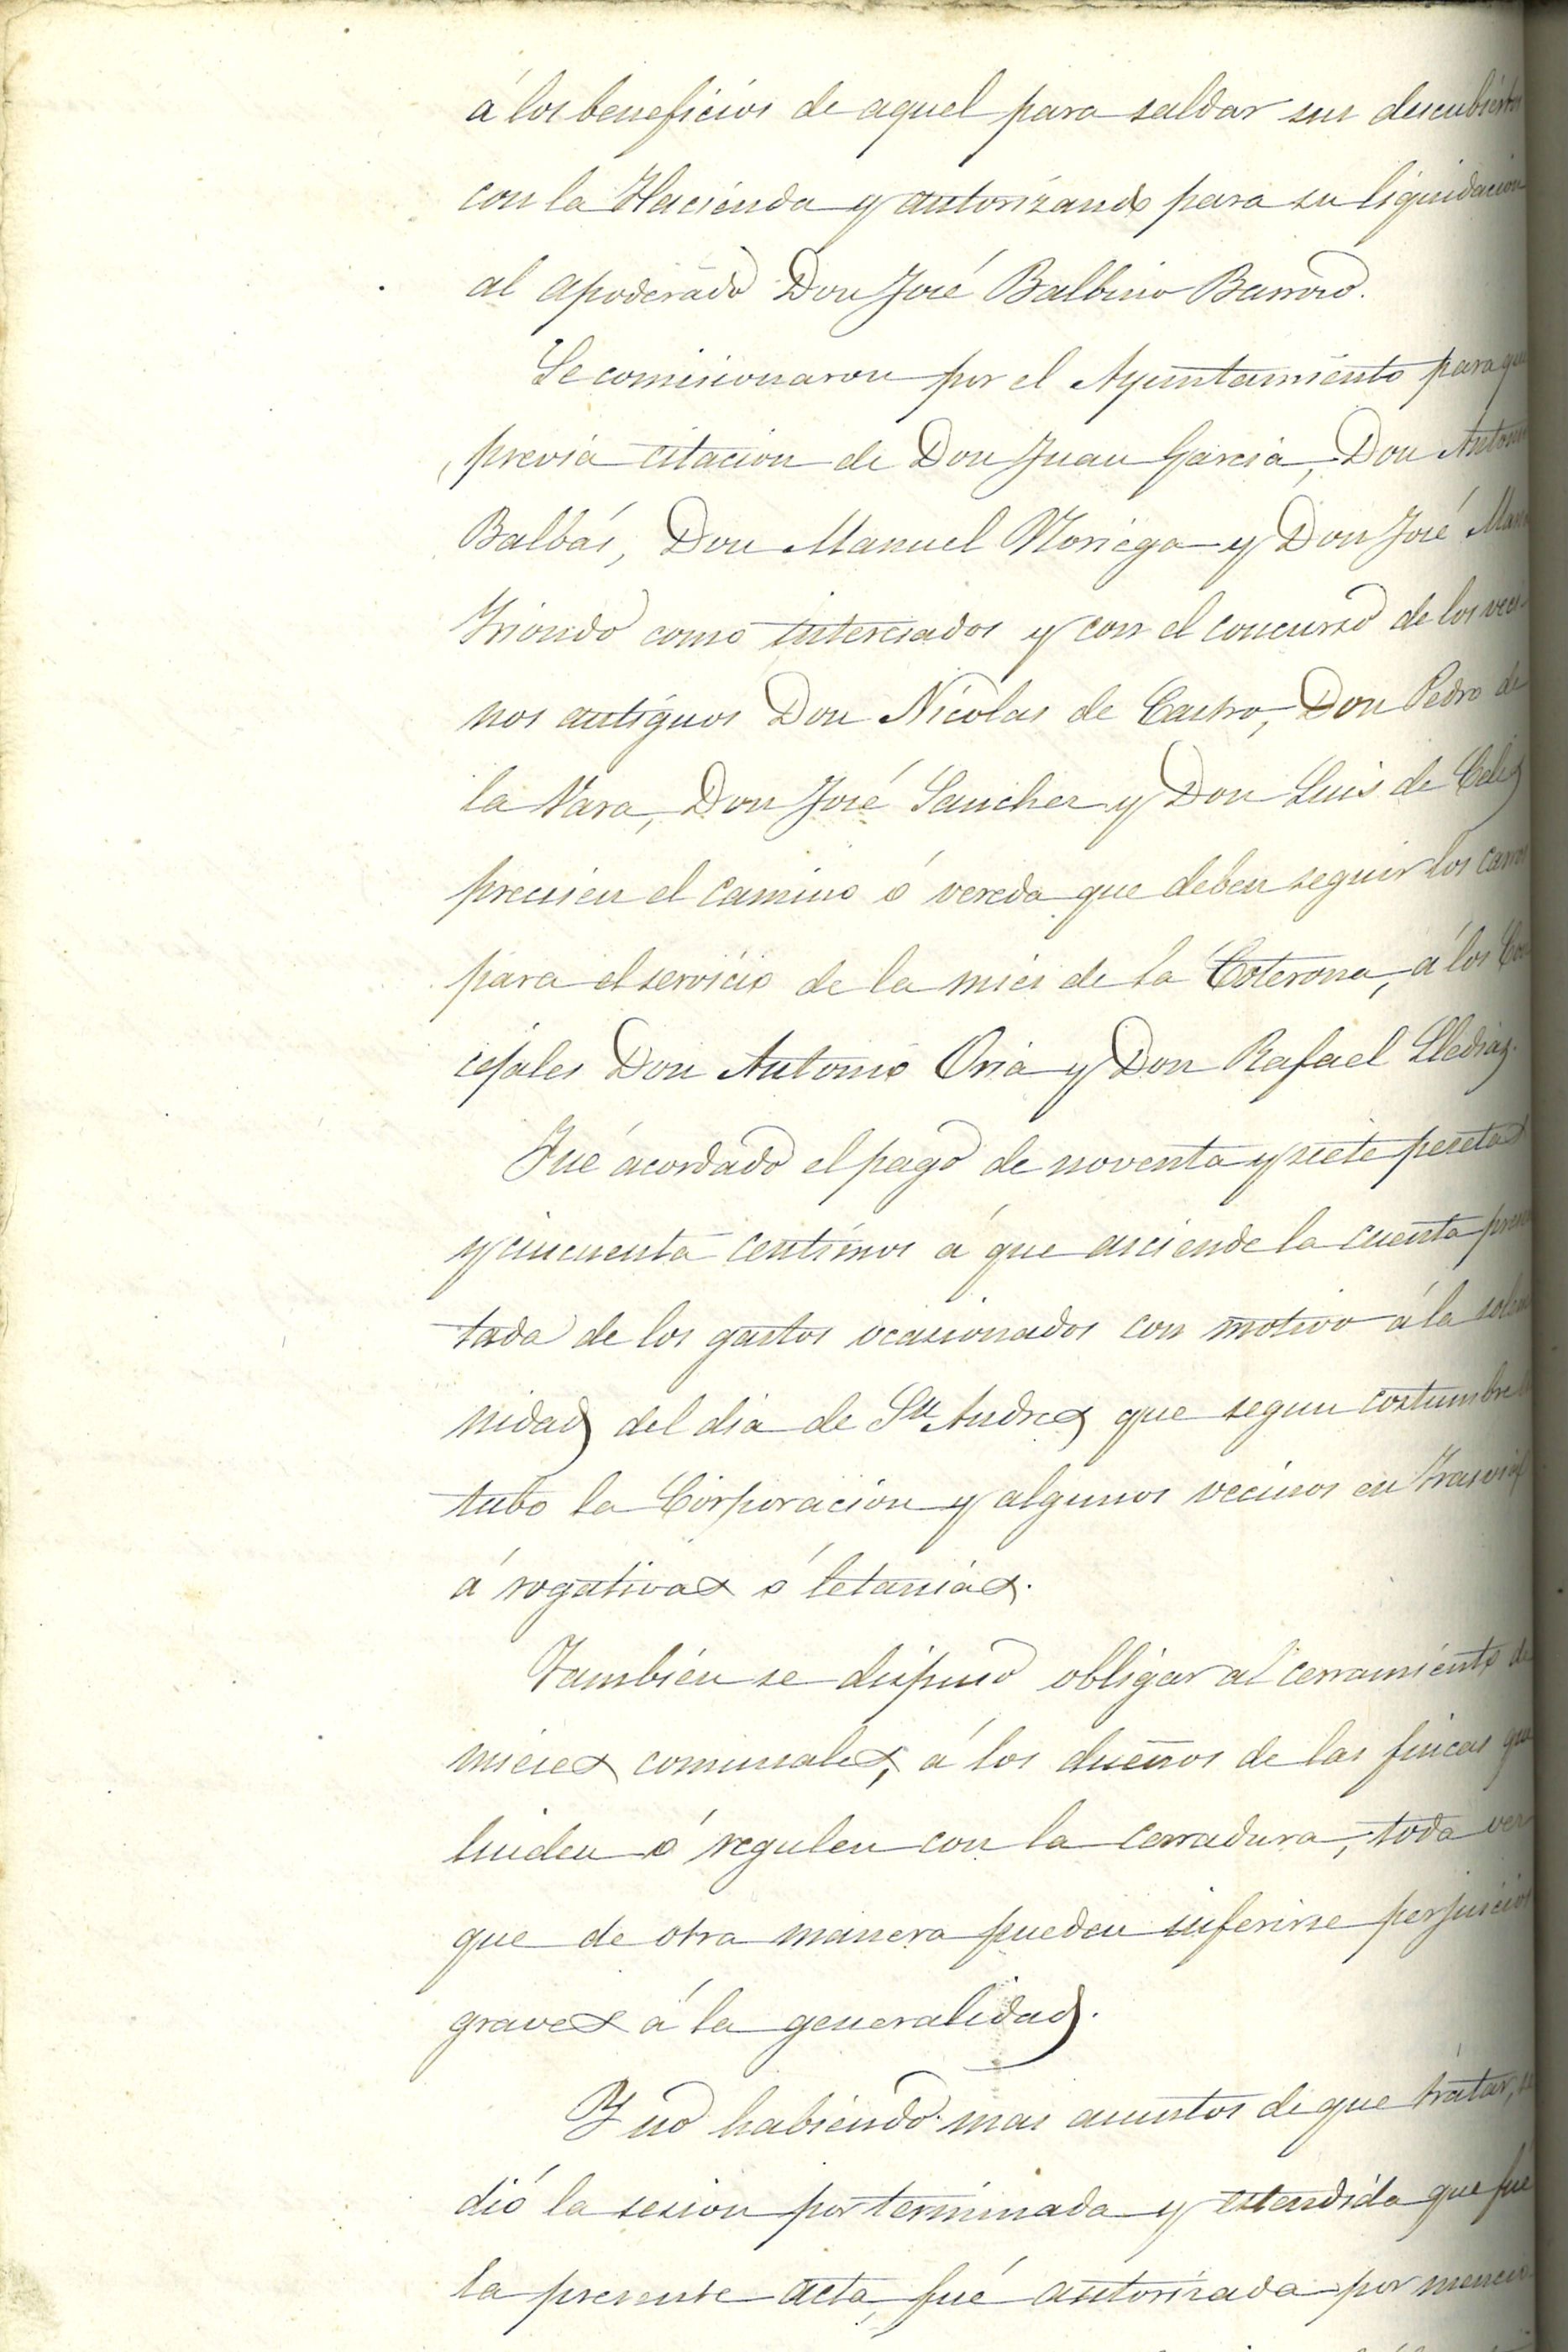 á los beneficios de aquel para saldar sus descubiertos
con la Hacienda y autorizando para su liquidacion
al apoderado Don José Balbino Barroso.
Se comisionaron por el Ayuntamiento para que
previa citacion de Don Juan Garcia, Don Antonio
Balbás, Don Manuel Noriega y Don José Maria
Yriondo como interesados y con el concurso de los veci-
nos antiguos Don Nicolas de Castro, Don Pedro de
la Vara, Don José Sanchez y Don Luis de Celis
precisen el camino ó vereda que deben seguir los carros
para el servicio de la mies de la Coterona, á los Con
cejales Don Antonio Oria y Don Rafael Llediaz.
Fué acordado el pago de noventa y siete pesetas
y cincuenta centimos á que asciende la cuenta presen
tada de los gastos ocasionados con motivo á la solem
nidad del dia de Sn Andres que segun costumbre
tubo la Corporacion y algunos vecinos en
á rogativas ó letanias.
También se dispuso obligar al cerramiento de
mieses comunales, á los dueños de las fincas que
linden ó regulen con la cerradura, toda vez
que de otra manera pueden inferirse perjuicios
graves á la generalidad.
Y no habiendo mas asuntos de que tratar, se
dió la sesion por terminada y estendida que fué
la presente acta, fué autorizada por mencio